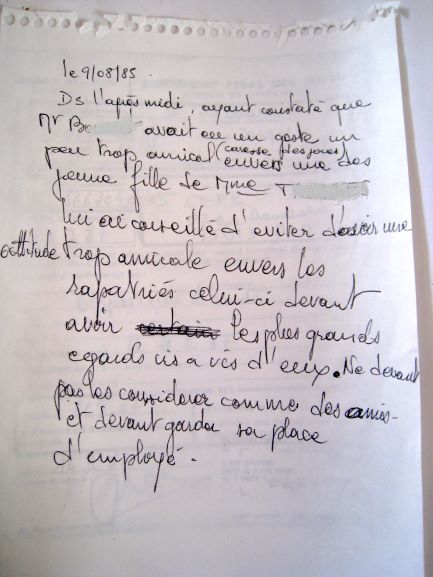 le 9/08/85.
Ds l'après midi, ayant constaté que
Mr B avait eu un geste un
peu trop amical (caresse des joues) envers une des
jeune fille de Mme T
lui ai conseillé d'eviter d'avoir une
attitude trop amicale envers les
rapatriés celui-ci devant
avoir certain les plus grands
egards vis a vis d'eux. Ne devant
pas les considerer comme des amis-
et devant garder sa place
d'employé.